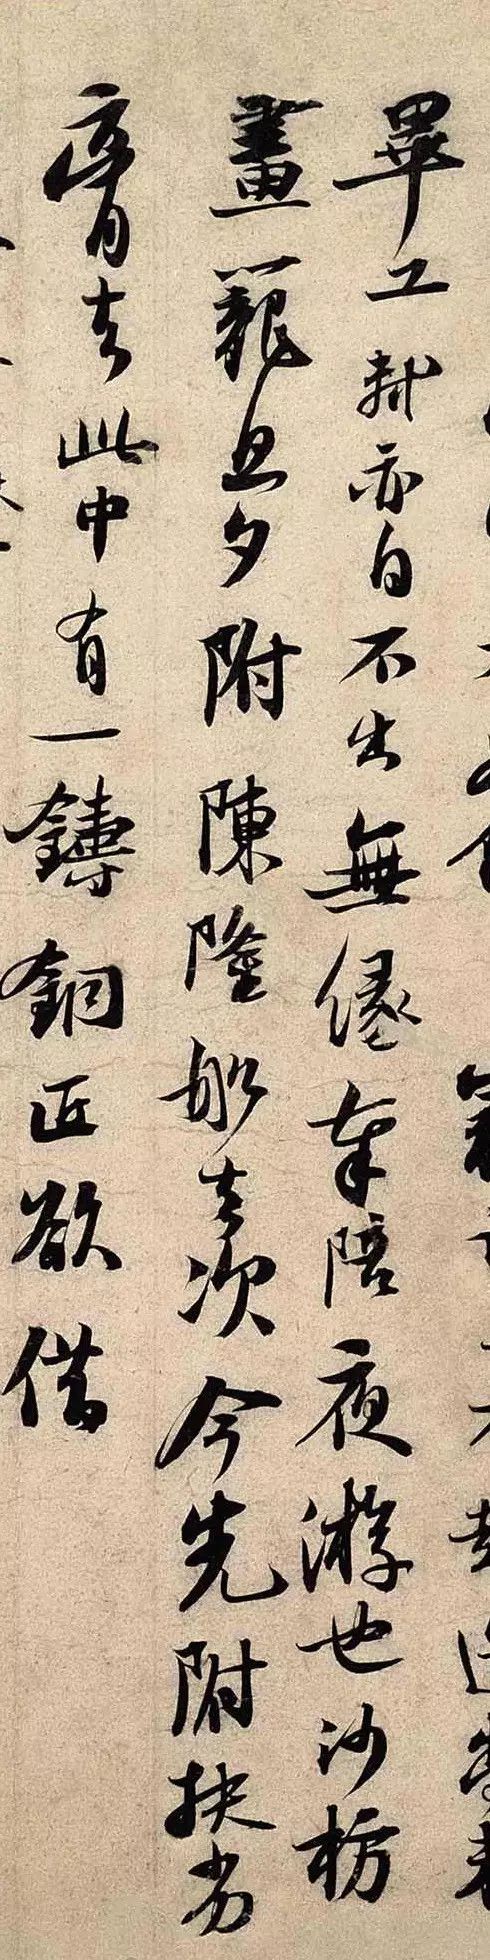 畢工軾亦自不出無緣奉陪夜游也沙枋
畫籠旦夕附陳隆船去次今先附扶劣
膏去此中有一鑄銅匠欲借